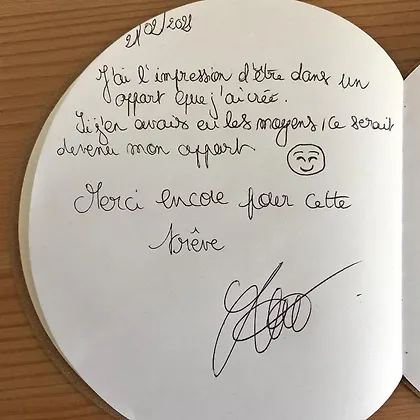 21/02/2021
J'ai l'impression d'être dans un
appart que j'ai créé.
Si j'en avais eu les moyens, ce serait
devenu mon appart
Merci encore pour cette
trêve